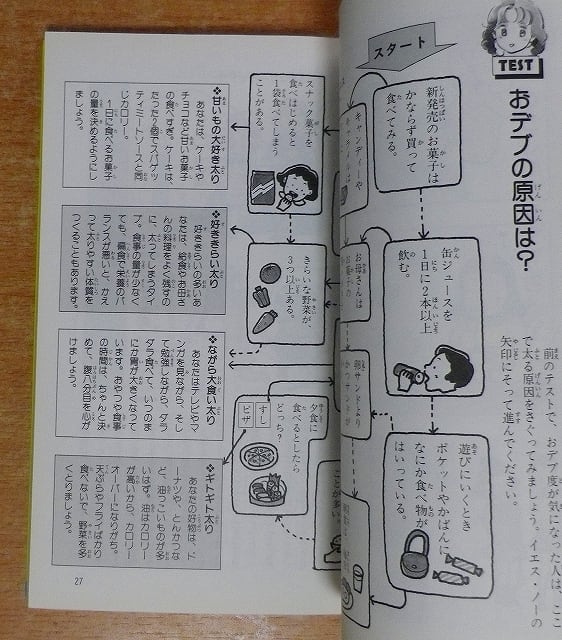 TEST
おデブの原因は?
前のテストで、おデブ度が気になった人は、ここ
で太る原因をさぐってみましょう。イエス・ノーの
矢印にそって進んでください。
スタート
新発売のお菓子は
かならず買って
食べてみる。
缶ジュースを
1日に2本以上
飲む。
遊びにいくとき
ポケットやかばんに
なにか食べ物が
はいっている。
キャンディーや
お母さんは
お菓子の
ことが多い。
スナック菓子を
食べはじめると
1袋食べてしまう
ことがある。
きらいな野菜が、
3つ以上ある。
夕食に
食べるとしたら
どっち?
すし
ピザ
❖甘いもの大好き太り
あなたは、ケーキや
チョコなど甘いお菓子
の食べすぎ。ケーキは、
たった1個でスパゲッ
ティミートソースと同
じカロリー。
1日に食べるお菓子
の量を決めるようにし
ましょう。
❖好ききらい太り
好ききらいの多いあ
なたは、給食やお母さ
んの料理をよく残すの
に、太ってしまうタイ
プ。食事の量が少なく
ても、偏食で栄養のバ
ランスが悪いと、かえ
って太りやすい体質を
つくることもあります。
❖ながら大食い太り
あなたはテレビやマ
ンガを見ながら、そし
て勉強しながら、ダラ
ダラ食べて、いつのま
にか胃が大きくなって
います。おやつや食事
の時間は、ちゃんと決
めて、腹八分目を心が
けましょう。
❖ギトギト太り
あなたの好物は、ド
ーナツや、とんかつな
ど、油っこいものが多
いはず。油はカロリー
が高いから、カロリー
オーバーになりがち。
天ぷらやフライばかり
食べないで、野菜を多
くとりましょう。
27